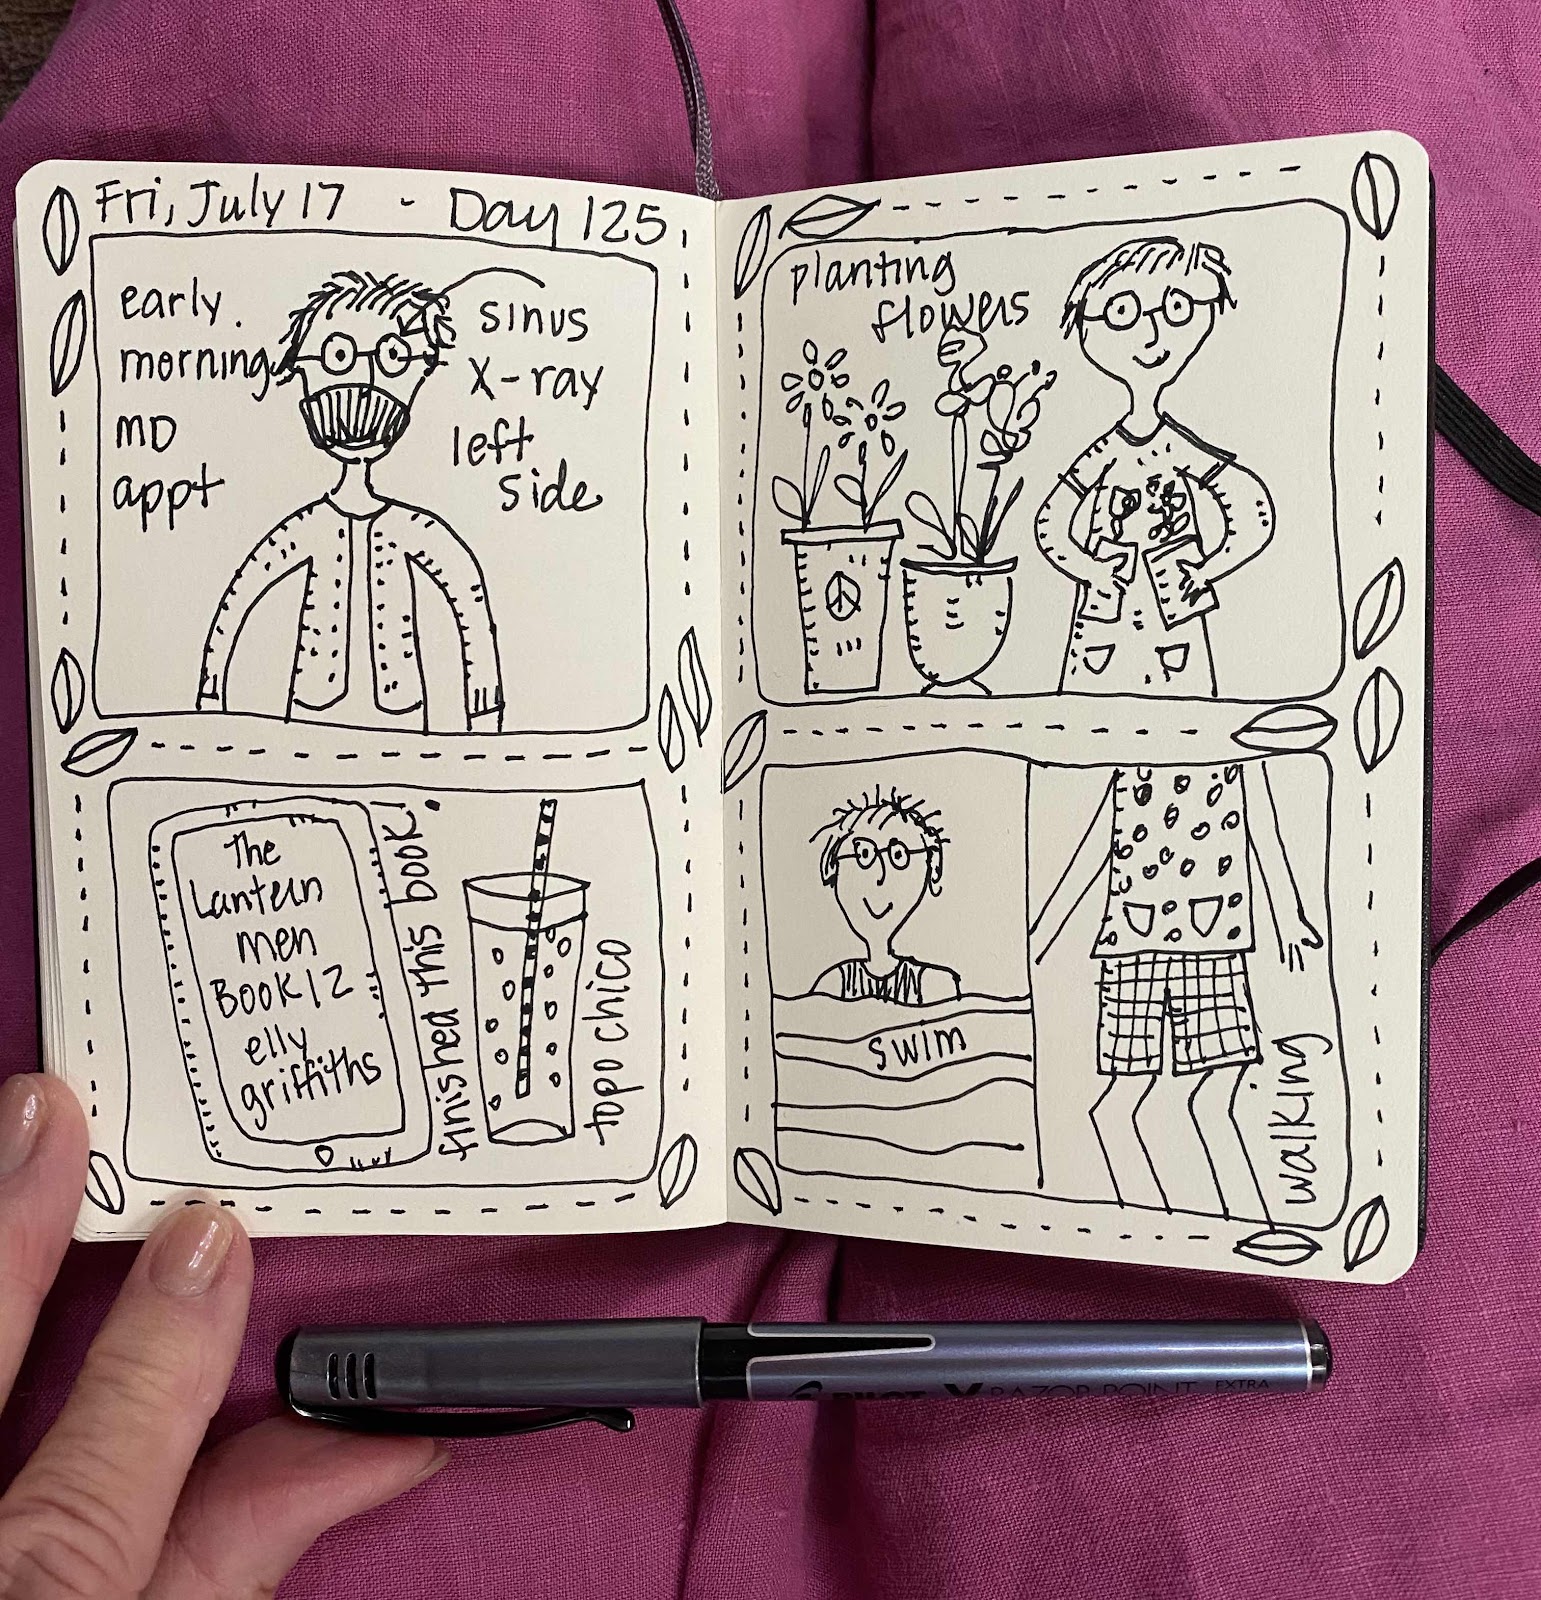 Fri, July 17 - Day 125
early
morning
MD
appt
sinus
X-ray
left
side
The
Lantern
men
BOOK 12
elly
griffiths
finished this book!
topo chico
planting
flowers
swim
walking
PILOT V RAZOR POINT EXTRA